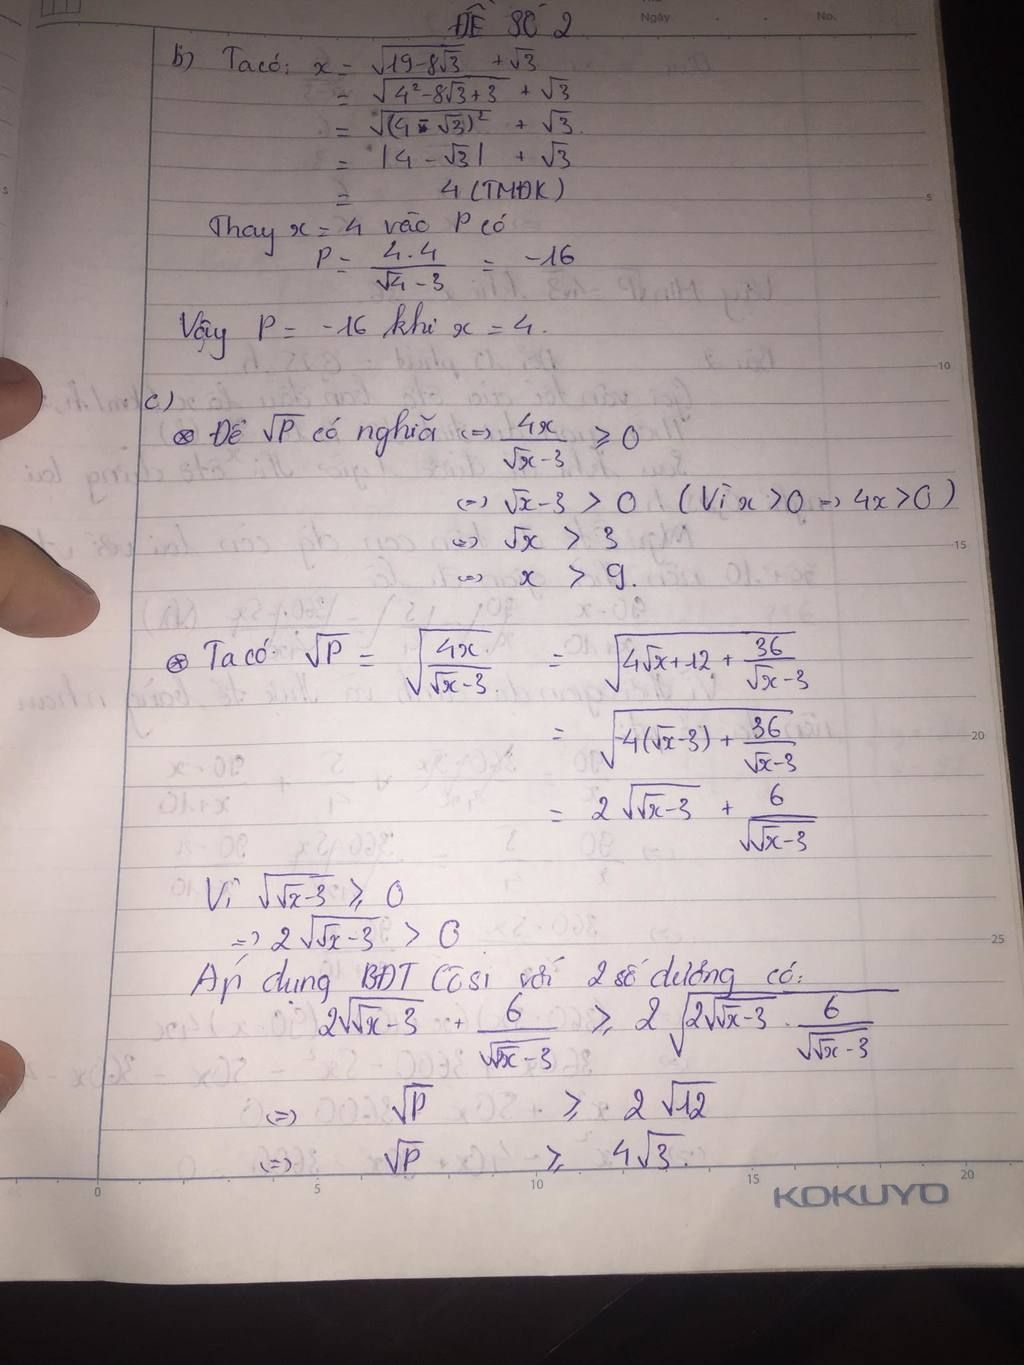 Ngày . . No.
ĐỀ SỐ 2
b) Ta có: x = √(19-8√3) + √3
= √(4²-8√3+3) + √3
= √((4-√3)²) + √3.
= |4-√3| + √3
= 4 (TMĐK)
Thay x = 4 vào P có
P = (4.4)/(√4-3) = -16
Vậy P = -16 khi x = 4.
c)
⊛ Để √P có nghĩa (=) 4x/(√x-3) ≥ 0
(=) √x-3 > 0 (Vì x>0 => 4x>0)
(=) √x > 3
(=) x > 9.
⊛ Ta có: √P = √(4x/(√x-3)) = √(4√x+12+36/(√x-3))
= √(4(√x-3)+36/(√x-3))
= 2√(√x-3) + 6/√(√x-3)
Vì √(√x-3) ≥ 0
=> 2√(√x-3) > 0
Áp dụng BĐT Côsi với 2 số dương có:
2√(√x-3) + 6/√(√x-3) ≥ 2√(2√(√x-3) . 6/√(√x-3))
(=) √P ≥ 2√12
(=) √P ≥ 4√3.
0 5 10 15 20
KOKUYO